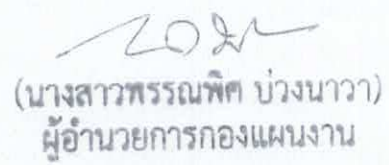 (นางสาวพรรณพิศ บ่วงนาวา)
ผู้อำนวยการกองแผนงาน